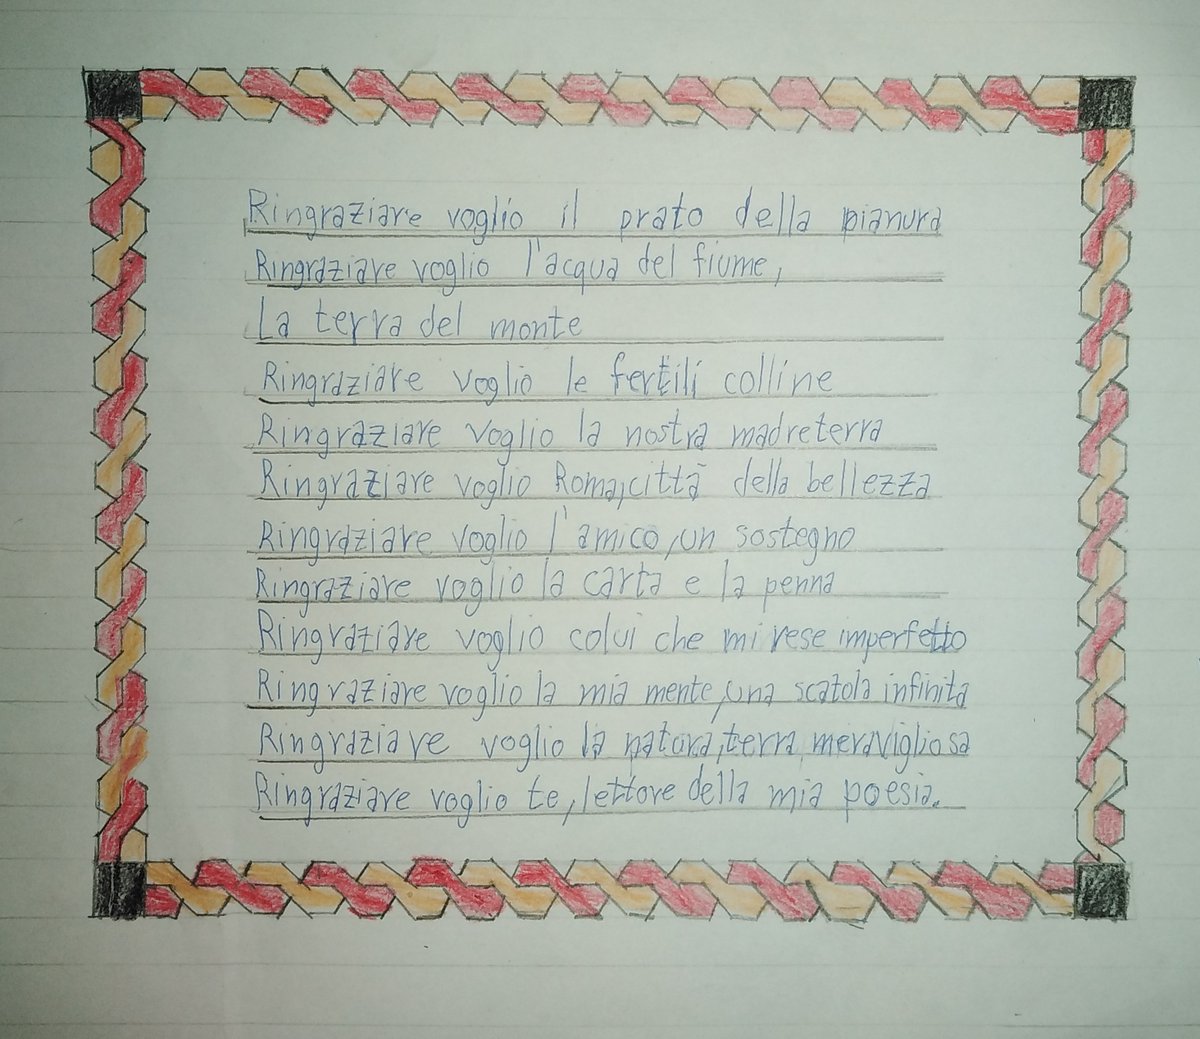 Ringraziare voglio il prato della pianura
Ringraziare voglio l'acqua del fiume,
La terra del monte
Ringraziare voglio le fertili colline
Ringraziare voglio la nostra madreterra
Ringraziare voglio Roma, città della bellezza
Ringraziare voglio l'amico, un sostegno
Ringraziare voglio la carta e la penna
Ringraziare voglio colui che mi rese imperfetto
Ringraziare voglio la mia mente, una scatola infinita
Ringraziare voglio la natura, terra meravigliosa
Ringraziare voglio te, lettore della mia poesia.